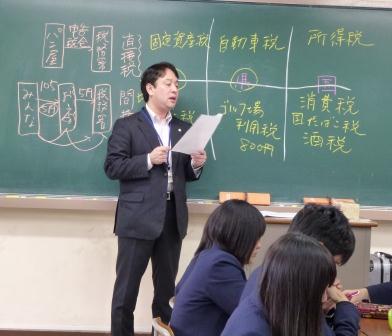 パン屋
税務署
直接税
固定資産税
自動車税
所得税
県
国
みんな
105
5円
税務署
間接
ゴルフ場
利用税
800円
消費税
国たばこ税
酒税